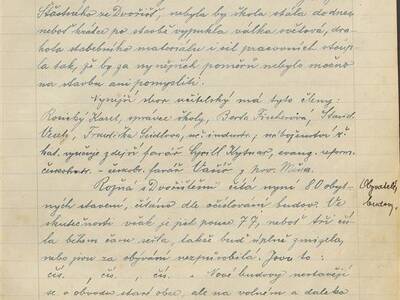 Šťastníka ze Dvořišť, nebyla by škola stála do dnes
neboť krátce po stavbě vypukla válka světová, dra-
hota stavebního materialu i sil pracovních stoup-
la tak, že by ga ny nějších poměrů nebylo možno
na stavbu ani pomysliti.
Nynější sbor učitelský má tyto členy:
Karel, správce školy, Berta
Veselý, Frant-ka Seidlova, uč. industr., náboženství ř.
kat. vyučuje zdejší farář Cyrill Kytnar, evang. reform.
farář
Rožná s Dvořištěm čítá nyní 80 obyt-
ných stavení, čítáno dle očíslování budov. Ve
skutečnosti však je jich pouze 77, neboť tři čís-
la během času sešla, takže buď úplně zmizela,
nebo jsou za obývání nezpůsobilá. Jsou to:
čís. , čís. , čís. . Nové budovy nestavějí
se v obvodu staré obce, ale na volném a daleko
Obyvatelé,
budovy.